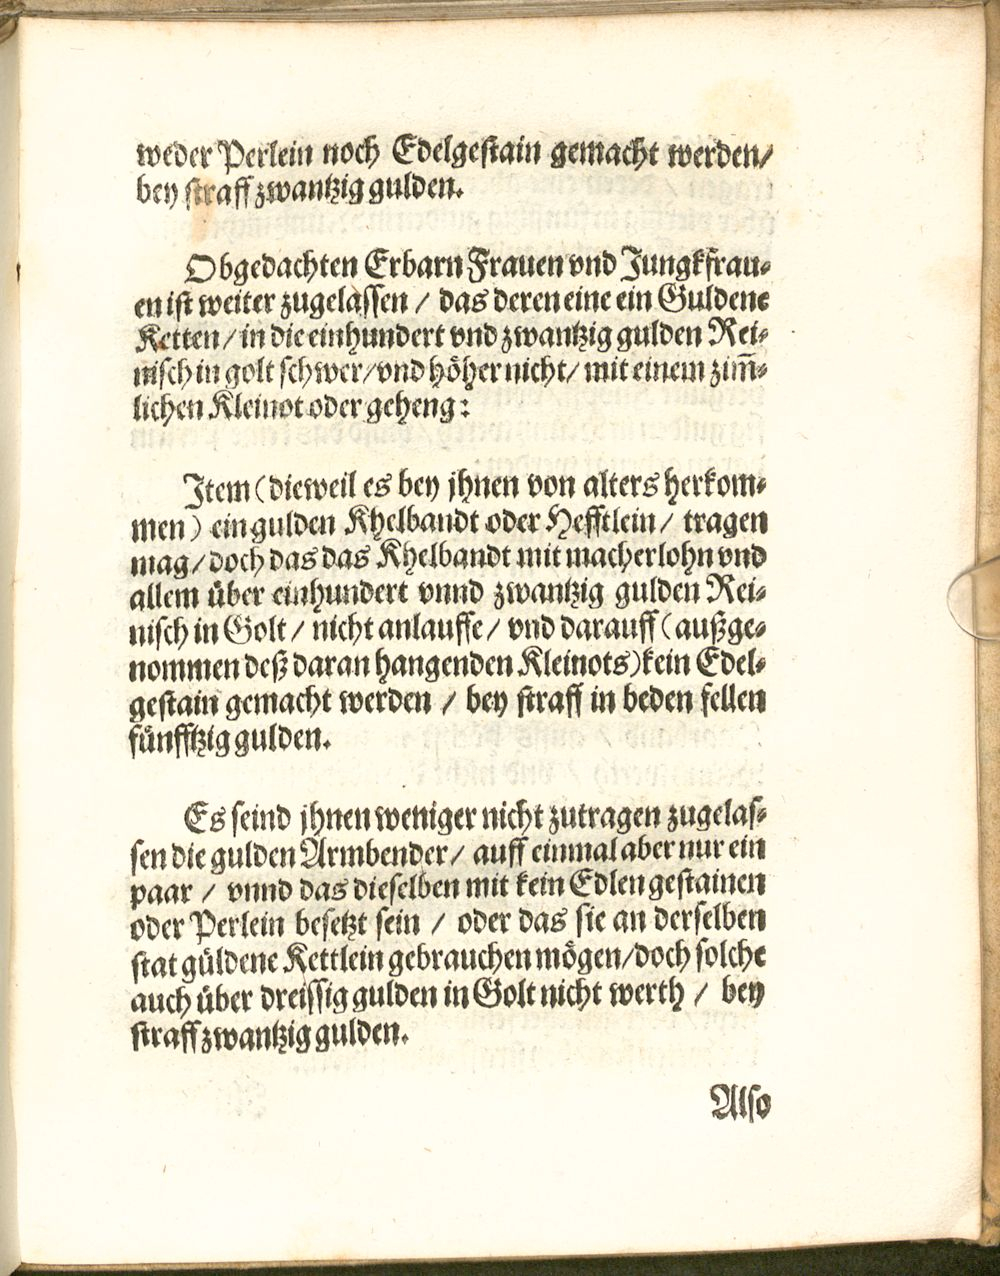 weder Perlein noch Edelgestain gemacht werden/
bey straff zwantzig gulden.
Obgedachten Erbarn Frauen vnd Jungkfrau⸗
en ist weiter zugelassen / das deren eine ein Guldene
Ketten / in die einhundert vnd zwantzig gulden Rei⸗
nisch in golt schwer/vnd höher nicht/ mit einem zim̅⸗
lichen Kleinot oder geheng:
Item (dieweil es bey jhnen von alters herkom⸗
men) ein gulden Khelbandt oder Hefftlein / tragen
mag / doch das das Khelbandt mit macherlohn vnd
allem über einhundert vnnd zwantzig gulden Rei⸗
nisch in Golt / nicht anlauffe / vnd darauff (außge⸗
nommen deß daran hangenden Kleinots) kein Edel⸗
gestain gemacht werden / bey straff in beden fellen
fünfftzig gulden.
Es seind jhnen weniger nicht zutragen zugelas⸗
sen die gulden Armbender / auff einmal aber nur ein
paar / vnnd das dieselben mit kein Edlen gestainen
oder Perlein besetzt sein / oder das sie an derselben
stat güldene Kettlein gebrauchen mögen/doch solche
auch über dreissig gulden in Golt nicht werth / bey
straff zwantzig gulden.
Also